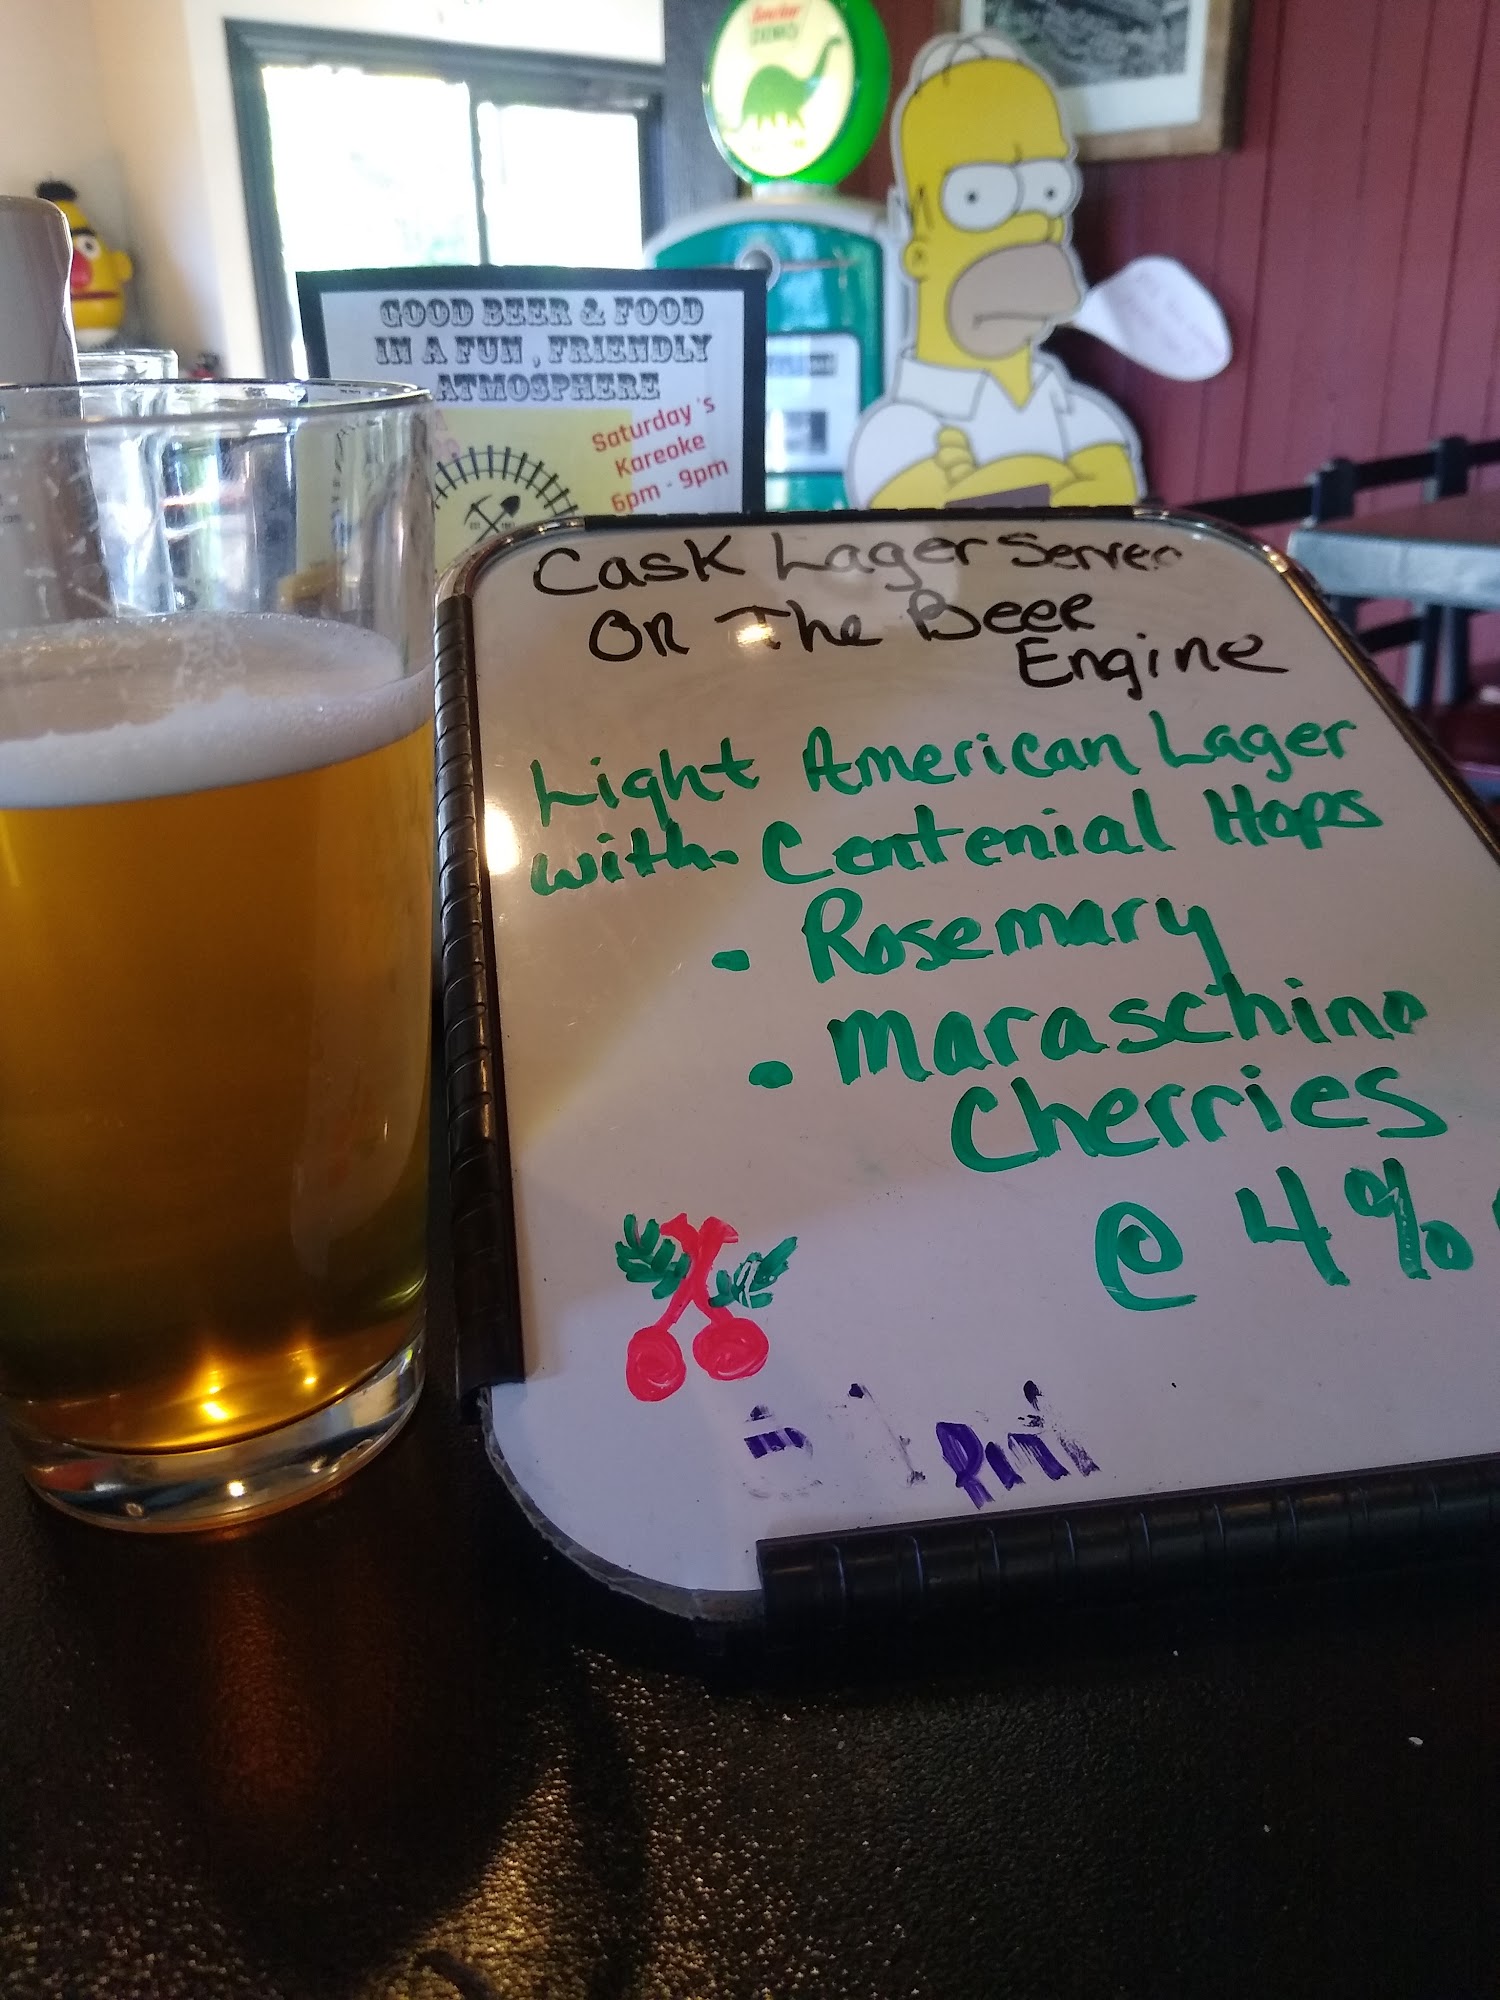 Sinclair
DINO
GOOD BEER & FOOD
IN A FUN, FRIENDLY
ATMOSPHERE
Saturday's
Kareoke
6pm - 9pm
Cask Lager Server
On The Beer
Engine
Light American Lager
with Centenial Hops
• Rosemary
• Maraschino
Cherries
@ 4%
Pint